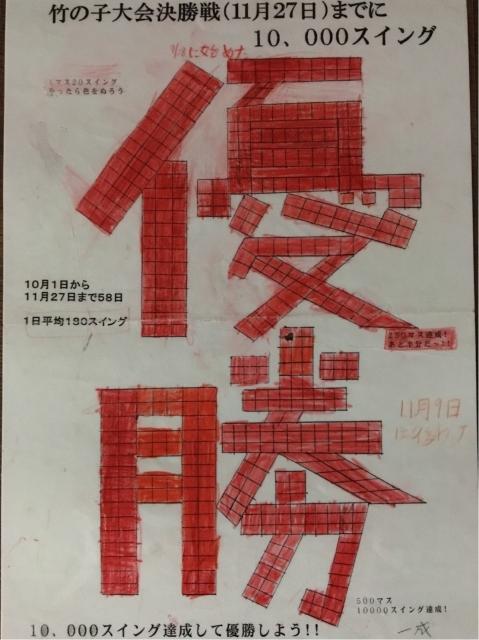 竹の子大会決勝戦(11月27日)までに
10、000スイング
1マス20スイング
やったら色をぬろう
優
10月1日から
11月27日まで58日
1日平均180スイング
250マス達成!
あと半分だっ!!
勝
11月9日
500マス
10000スイング達成!
10、000スイング達成して優勝しよう!!